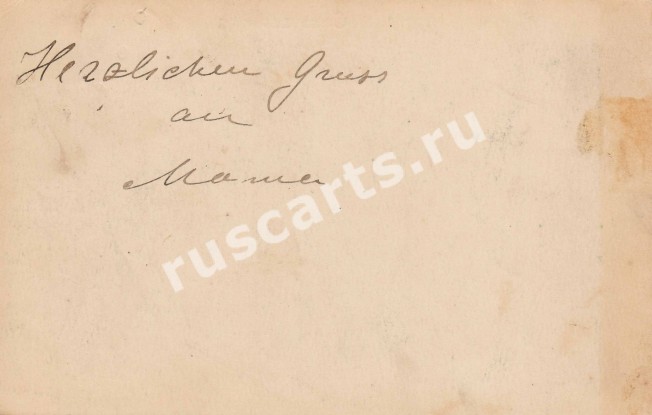 Herzlichen Gruss
an
Mama
ruscarts.ru